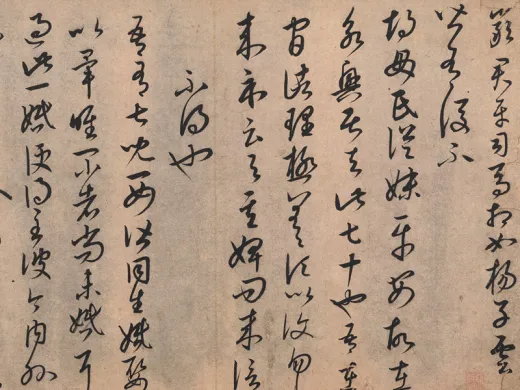 嚴君平司馬相如楊子雲
皆有後不
胡毋氏從妹平安故在
永興居去此七十也吾在
官諸理極差頃比復勿
來示云與其婢問來信
不得也
吾有七兒一女皆同生婚娶
以畢唯一小者尚未婚耳
過此一婚便得至彼今內外孫